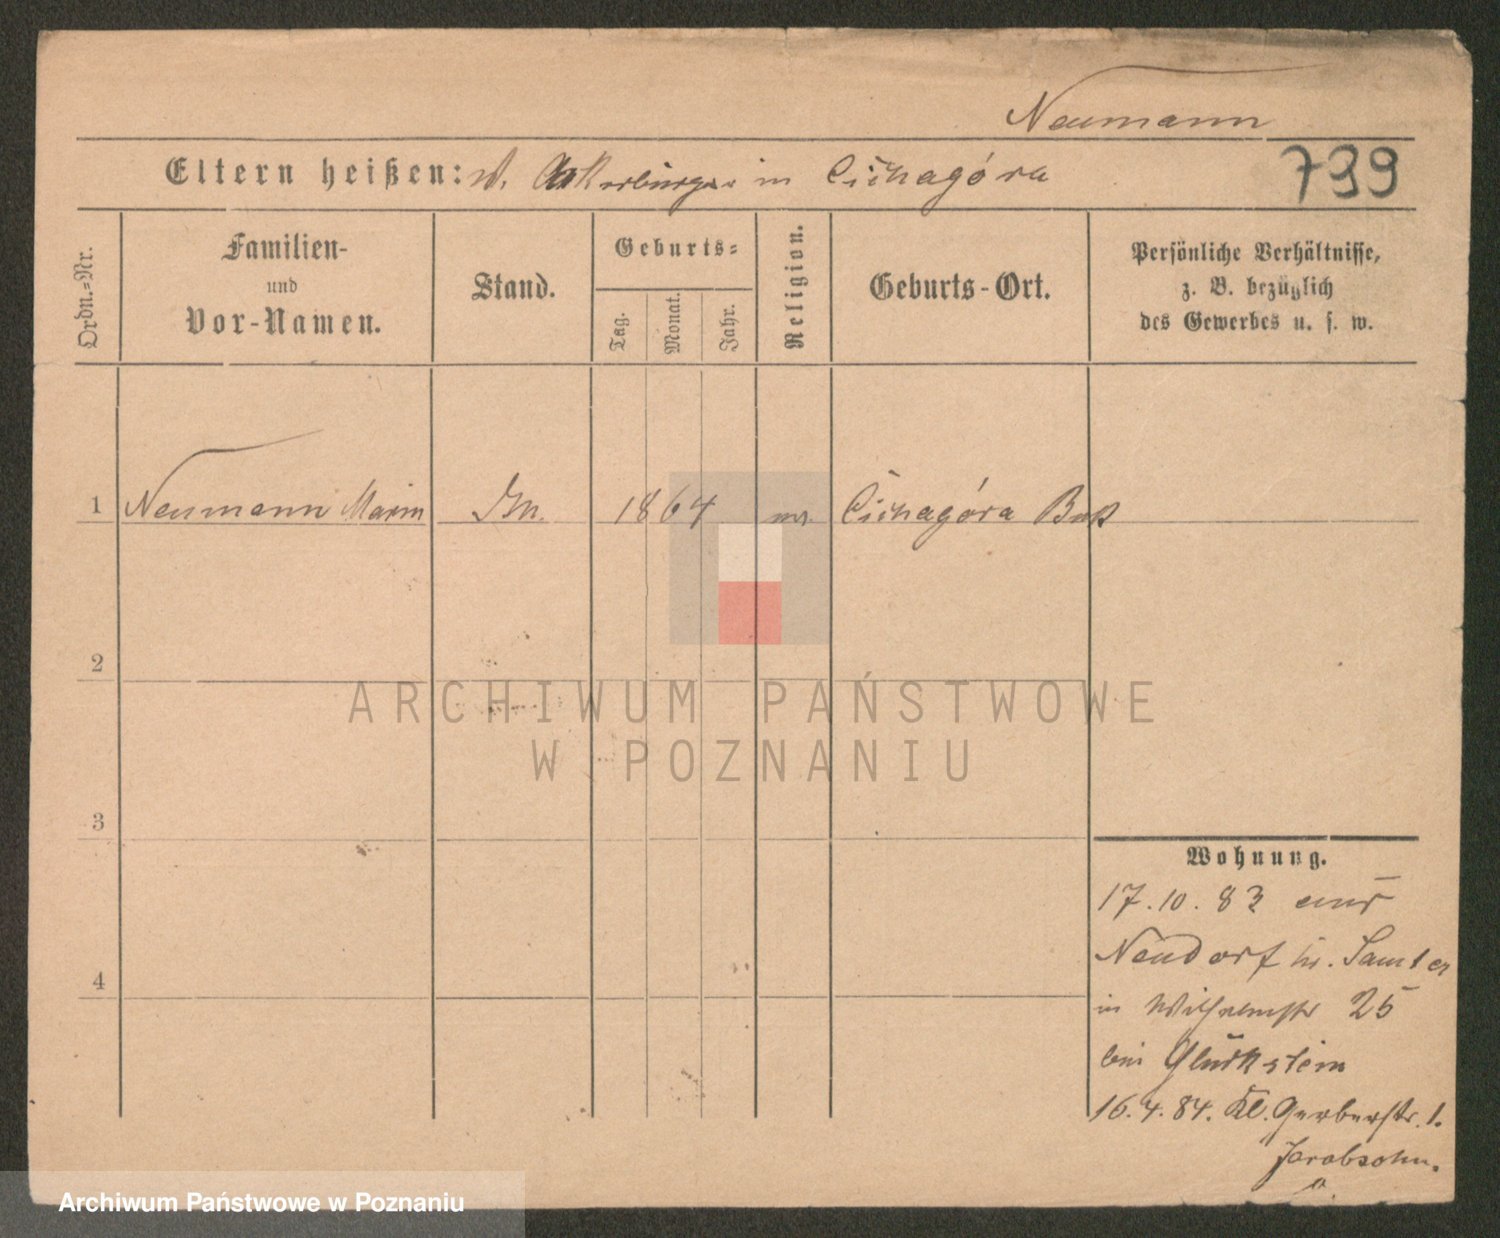 Neumann
Eltern heißen: W. Ackerbürger in Cichagóra
739
Ordn.-Nr.
Familien-
und
Vor-Namen.
Stand.
Geburts-
Tag.
Monat.
Jahr.
Religion.
Geburts-Ort.
Persönliche Verhältnisse,
z. B. bezüglich
des Gewerbes u. s. w.
1 Neumann Marin 1864 Cichagóra Buk
2
3
4
Wohnung.
17.10.83 aus
Neudorf Kr. Samter
in Wilhelmstr 25
bei Glückstein
16.4.84. Kl. Gerberstr. 1.
Jacobsohn.
ARCHIWUM PAŃSTWOWE
W POZNANIU
Archiwum Państwowe w Poznaniu